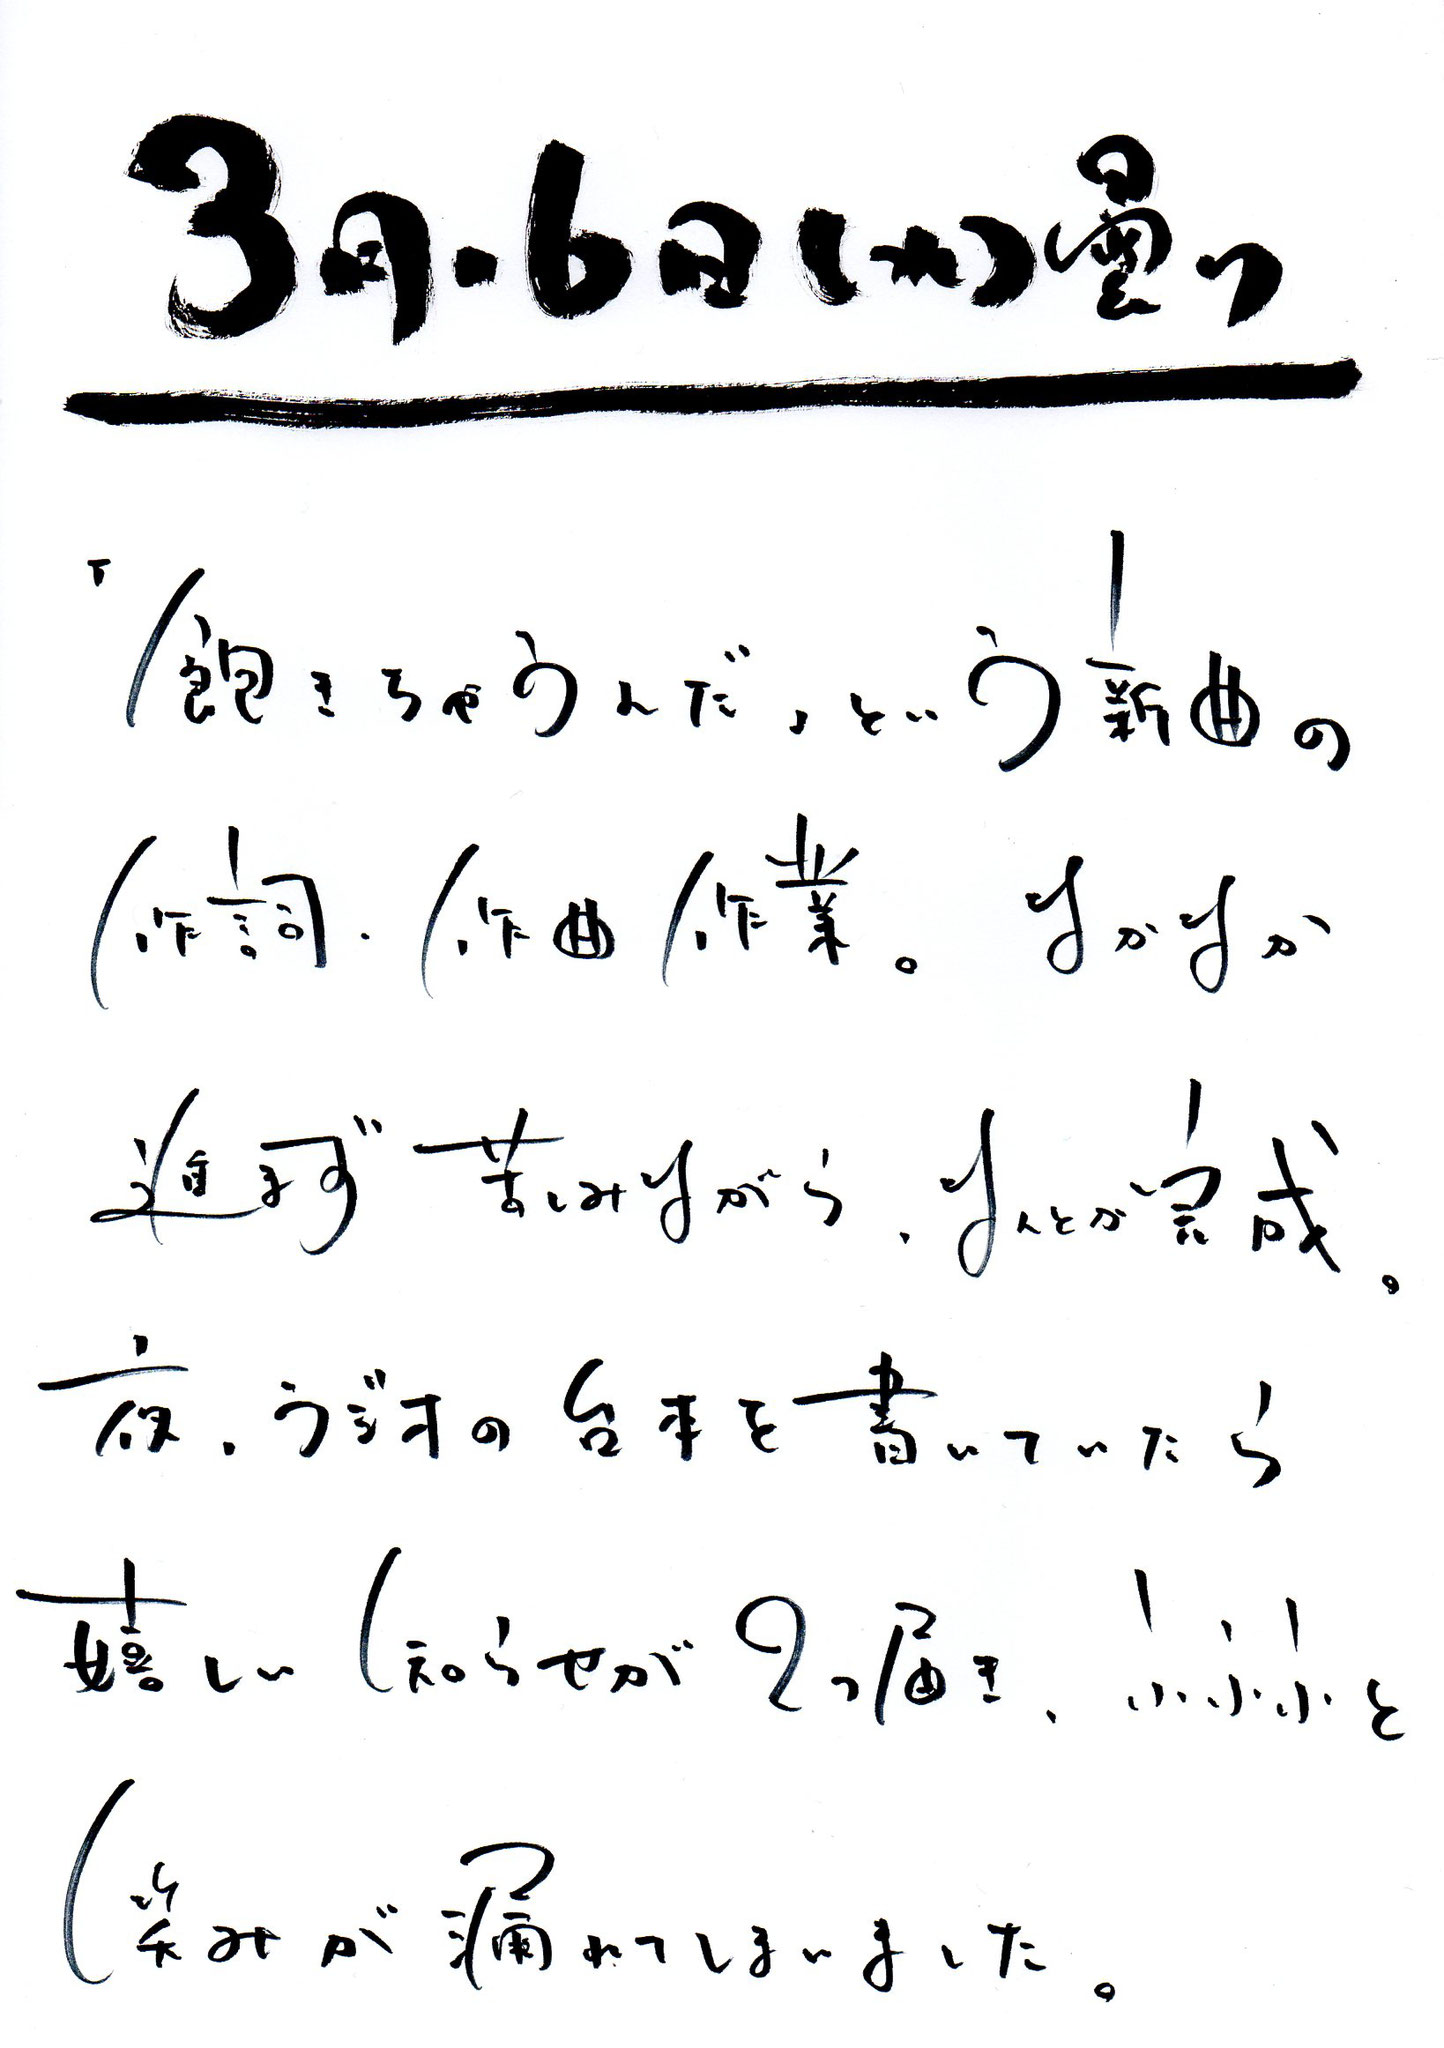 3月・6日(水)曇り
「飽きちゃうんだ」という新曲の
作詞・作曲作業。なかなか
進まず苦しみながら、なんとか完成。
夜、ラジオの台本を書いていたら
嬉しい知らせが2つ届き、ふふふと
笑みが漏れてしまいました。